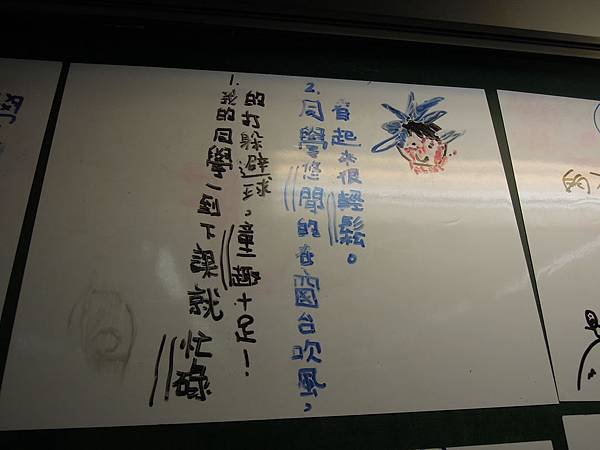 1.我的同學一到下課就忙碌
的打躲避球，童趣十足！
2.同學悠閒的在窗台吹風，
看起來很輕鬆。